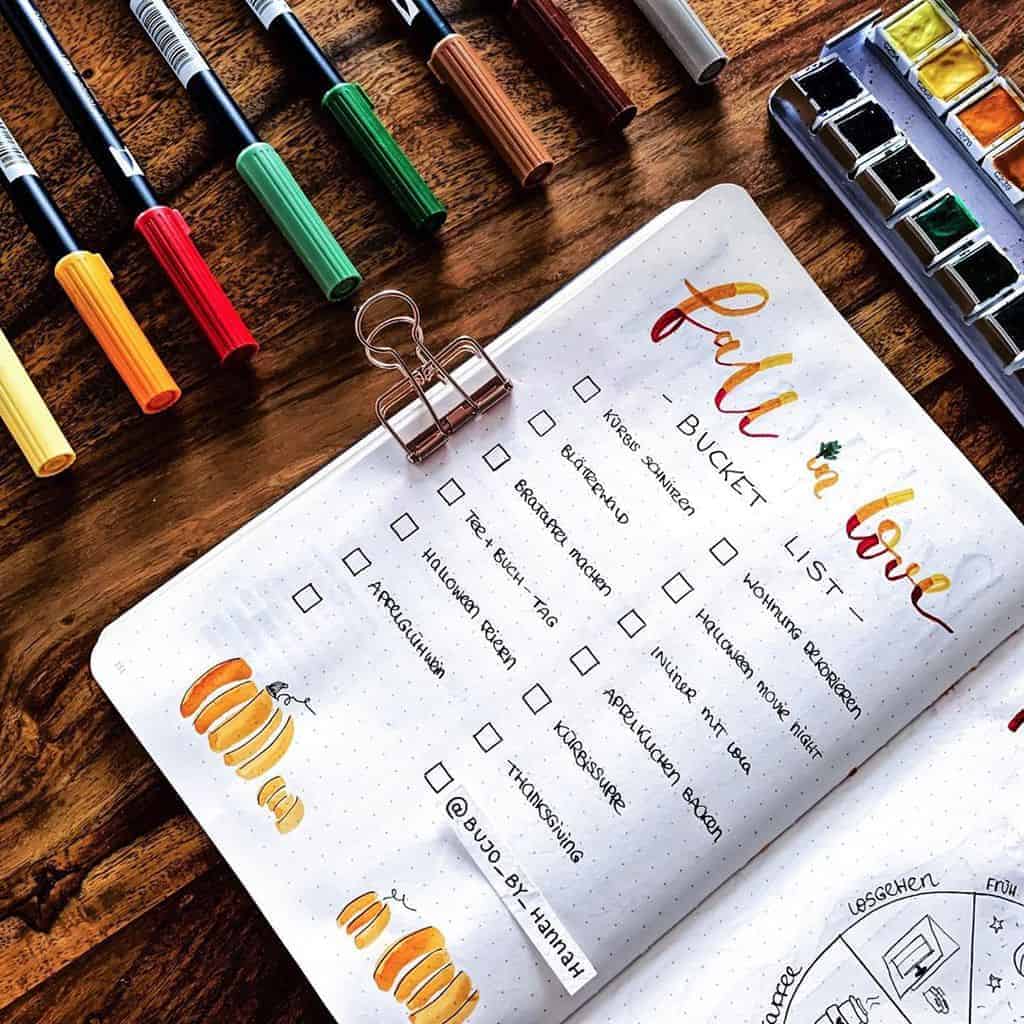 fall in love
- BUCKET LIST -
KÜRBIS SCHNITZEN
BLÄTTERWALD
BRATAPFEL MACHEN
TEE + BUCH - TAG
HALLOWEEN FEIERN
APFELGLÜHWEIN
WOHNUNG DEKORIEREN
HALLOWEEN MOVIE NIGHT
INLINER MIT
APFELKUCHEN BACKEN
KÜRBISSUPPE
THANKSGIVING
@BUJO_BY_HANNAH
LOSGEHEN
FRÜH